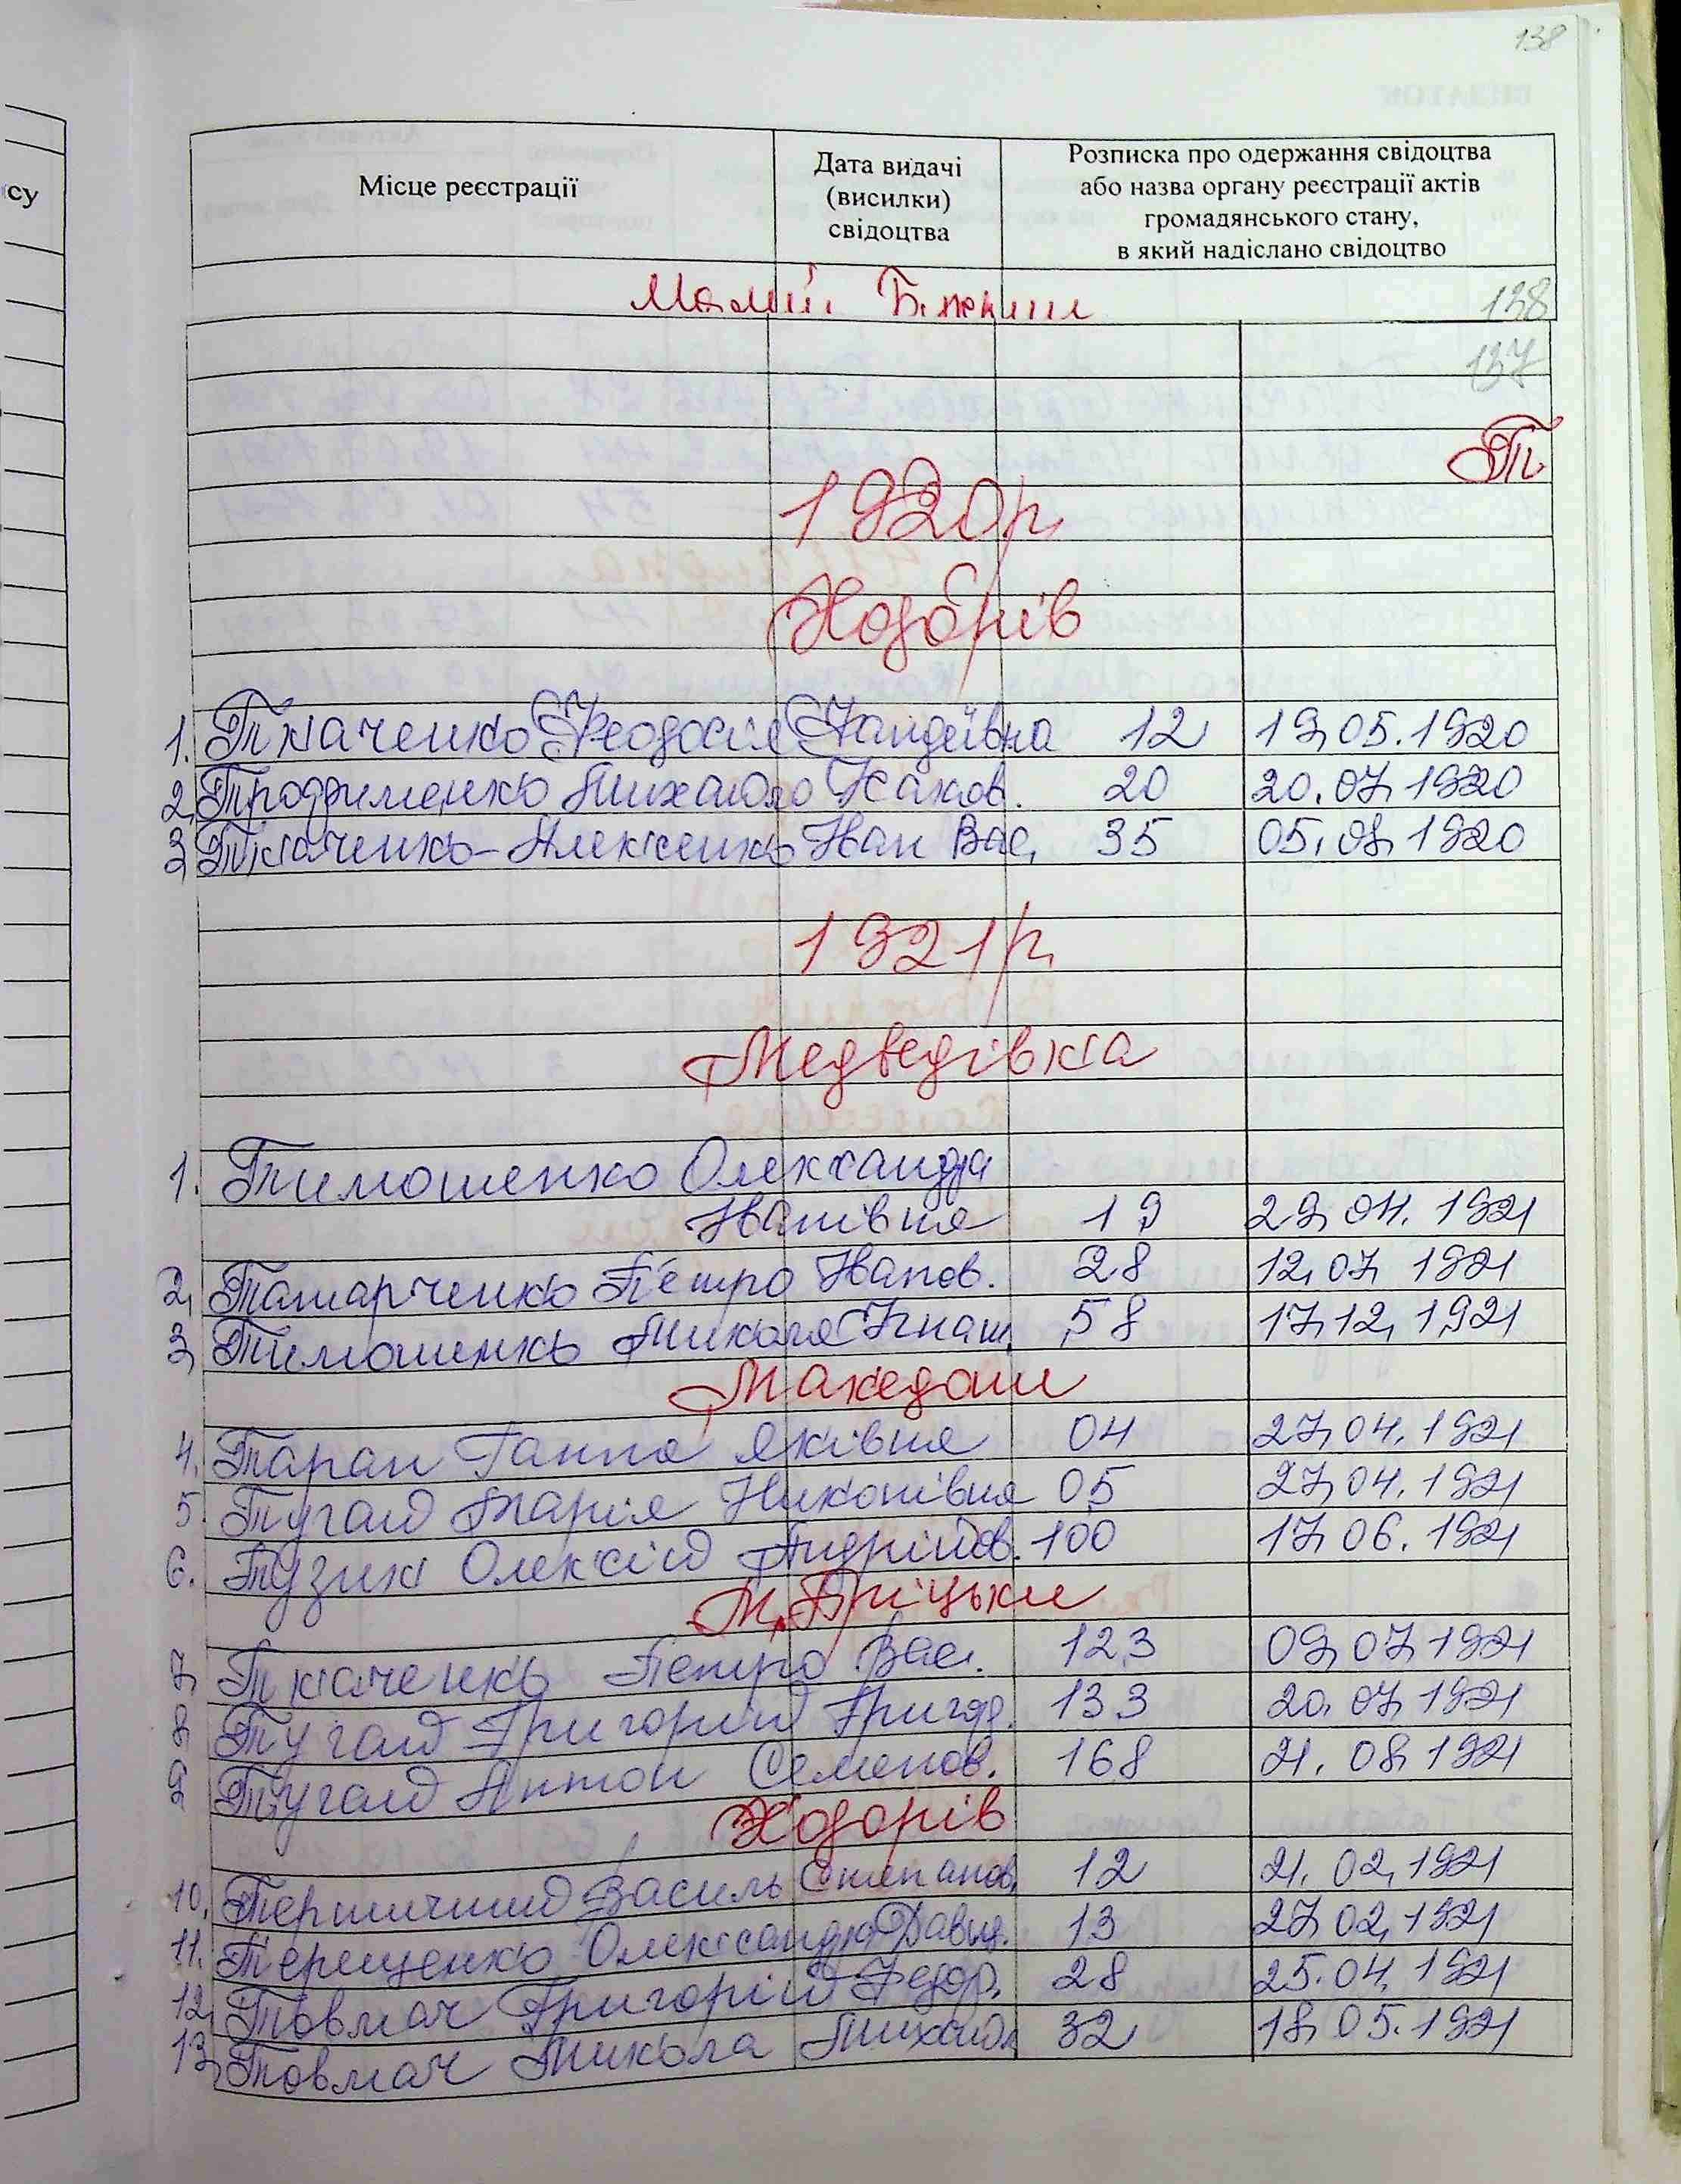 138
су
Місце реєстрації
Дата видачі
(висилки)
свідоцтва
Розписка про одержання свідоцтва
або назва органу реєстрації актів
громадянського стану,
в який надіслано свідоцтво
Малий Букрин 138
137
Т
1920р.
Ходорів
1. Ткаченко Феодосія Фандеївна 12 19.05.1920
2. Трофименко Михайло Исаков. 20 20.07.1920
3. Ткаченко-Алексенко Иван Вас. 35 05.08.1920
1921р.
Медведівка
1. Тимошенко Олександра
Иванівна 19 29.04.1921
2. Татарченко Петро Иванов. 28 12.07.1921
3. Тимошенко Микола Игнат. 58 17.12.1921
Македони
4. Таран Ганна Яківна 04 27.04.1921
5. Тугай Марія Никонівна 05 27.04.1921
6. Тузик Олексій Андрійов. 100 17.06.1921
М. Пріцьки
7. Ткаченко Петро Вас. 123 09.07.1921
8. Тугай Григорій Григор. 133 20.07.1921
9. Тугай Антон Семенов. 168 21.08.1921
Ходорів
10. Терпичний Василь Степанов. 12 21.02.1921
11. Терещенко Олександра Давид. 13 27.02.1921
12. Товмач Григорій Федор. 28 25.04.1921
13. Товмач Микола Михайл. 32 18.05.1921